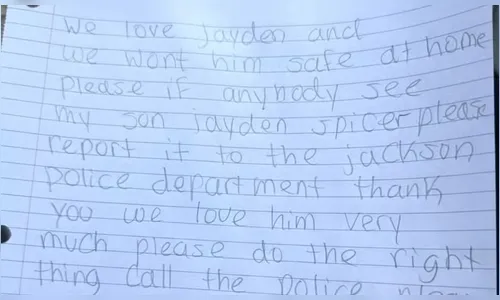 we love jayden and
we wont him safe at home
please if anybody see
my son jayden spicer please
report it to the jackson
police department thank
you we love him very
much please do the right
thing call the police